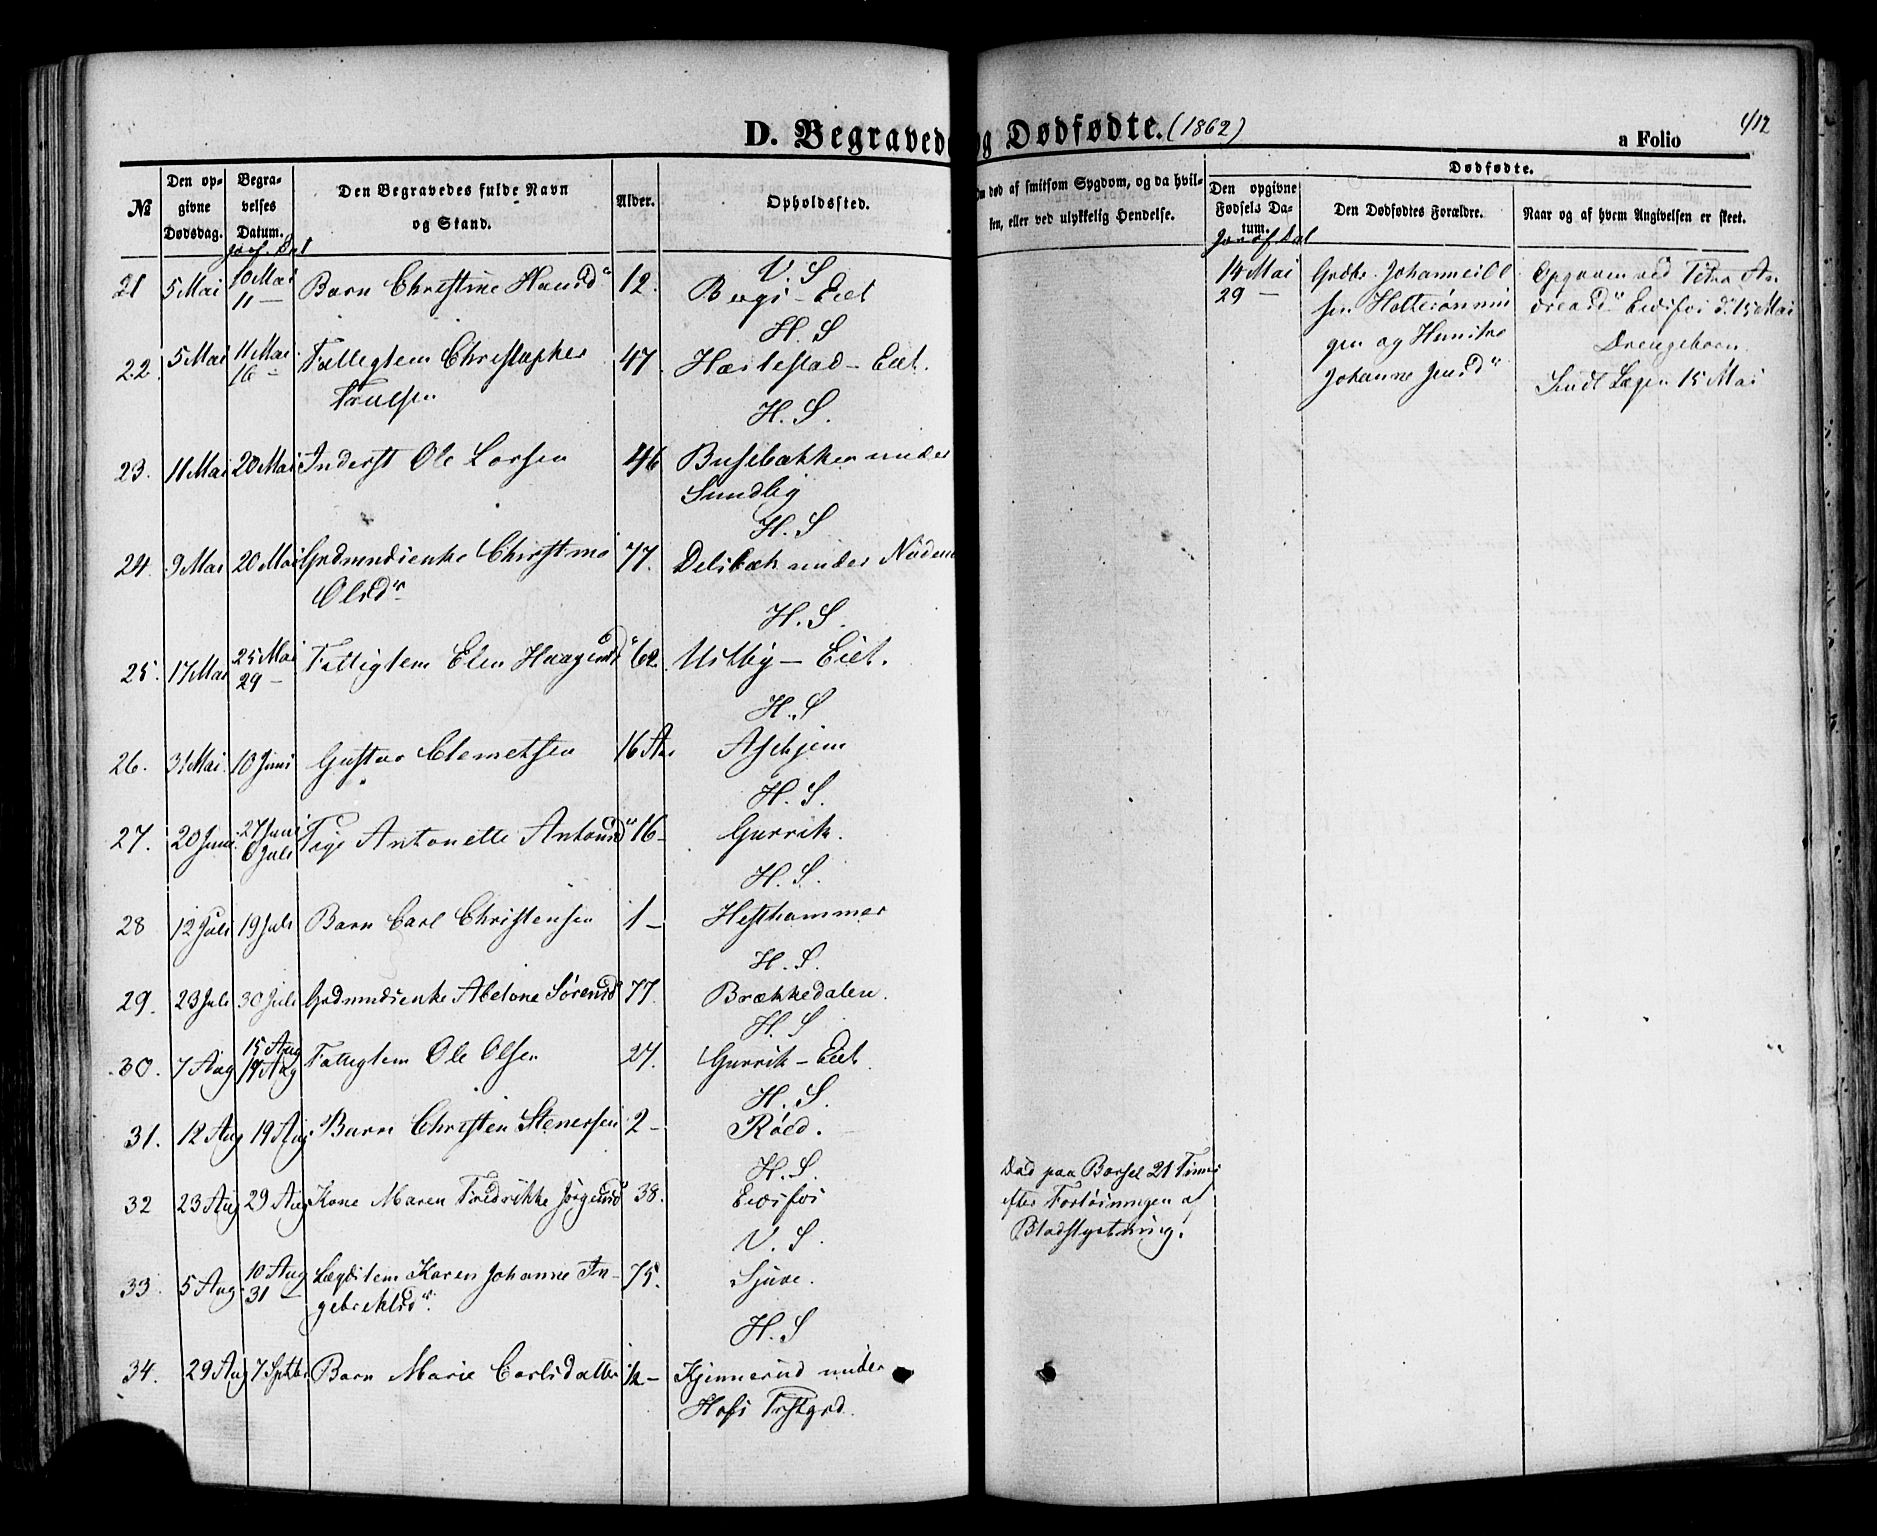 D. Begravede og Dødfødte. (1862)
a Folio 412
№
Den opgivne Dødsdag.
Begravelses Datum.
Den Begravedes fulde Navn og Stand.
Alder.
Opholdssted.
Om død af smitsom Sygdom, og da hvilken, eller ved ulykkelig Hendelse.
Dødfødte.
Den opgivne Fødsels Datum.
Den Dødfødtes Forældre.
Naar og af hvem Angivelsen er skeet.
V. S
21 5 Mai 10 Mai Barn Christine Hansdr 12. Bergs-Eiet
11 —
H. S
22. 5 Mai 11 Mai Fattiglem Christopher 47. Hærlestad-Eiet.
16 — Truelsen
H. S.
23. 11 Mai 20 Mai Inderst Ole Larsen 46 Busebakken under
Sundby
H. S
24. 9 Mai 20 Mai Grdmndsenke Christine 77. Delsbæk under
Olsdr
H. S.
25. 17 Mai 25 Mai Fattiglem Elen Haagensdr 62. Ustby — Eiet.
29 —
H. S
26. 31 Mai 10 Juni Gustav Clemetsen 16 Aar Askjem
H. S.
27. 20 Juni 27 Juni Pige Antonette Antonsdr 16 — Gurrik.
6 Juli
H. S.
28 12 Juli 19 Juli Barn Carl Christensen 1 — Hesthammer
H. S.
29. 23 Juli 30 Juli Grdmndsenke Abelone Sørensd 77. Brækkedalen.
H. S
30. 7 Aug 15 Aug Fattiglem Ole Olsen 24. Gurrik-Eiet.
17 Aug
H. S.
31. 12 Aug 19 Aug. Barn Christen Stenersen 2 — Røed.
H. S.
32 23 Aug 29 Aug Kone Maren Fredrikke Jørgensd 38. Eidsfos
Død paa Barsel 21 Timer
efter Forløsningen af
Blodstyrtning.
V. S.
33. 5 Aug 10 Aug Lægdslem Karen Johanne In- 75. Sjuve.
31 — gebrektsdr.
H. S
34. 29 Aug 7 Septbr Barn Marie Carlsdatter ½ — Kjennerud under
Hofs Prstgrd.
14 Mai
29 —
Grdbr. Johannes Ol
sen
gen og Hustru
Johanne Jensdr
Opgiven ved Petra An-
dreasdr Eidsfos d. 15 Mai
Drengebarn.
Sendt Lægen 15 Mai